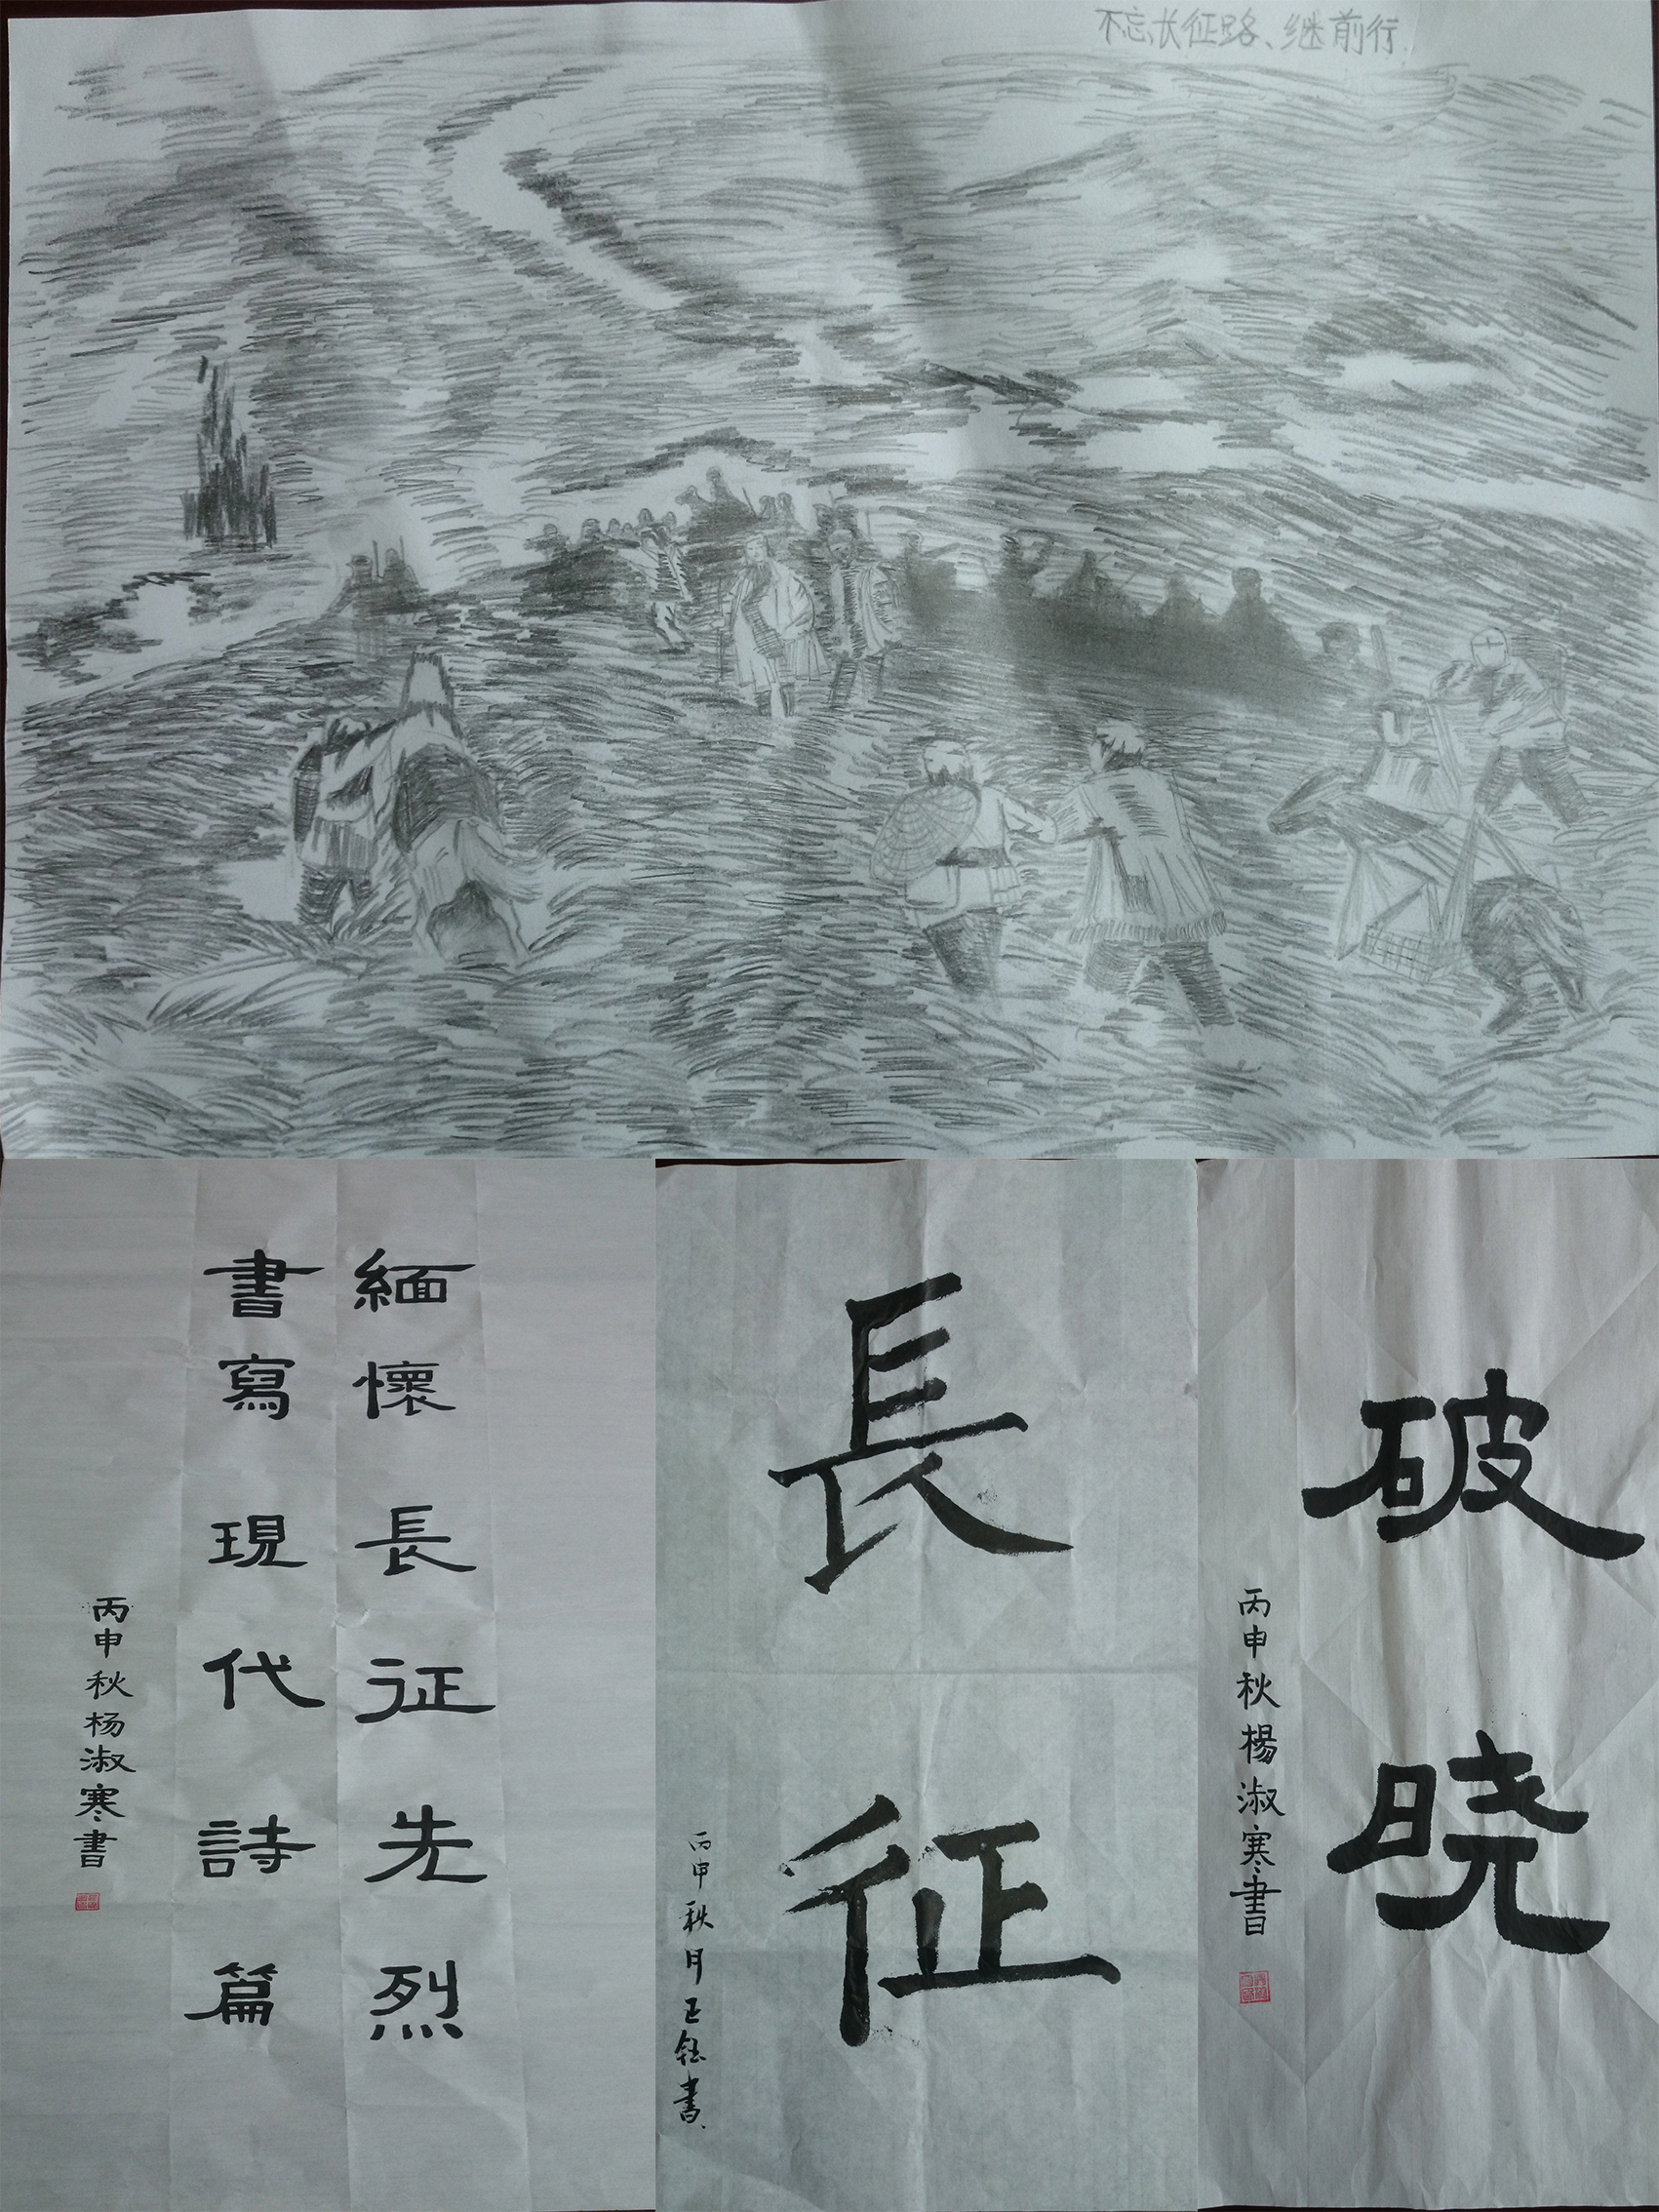 不忘长征路、继前行.
緬懷長征先烈
書寫現代詩篇
丙申秋杨淑寒書
長征
丙申秋月正钰書
破晓
丙申秋楊淑寒書